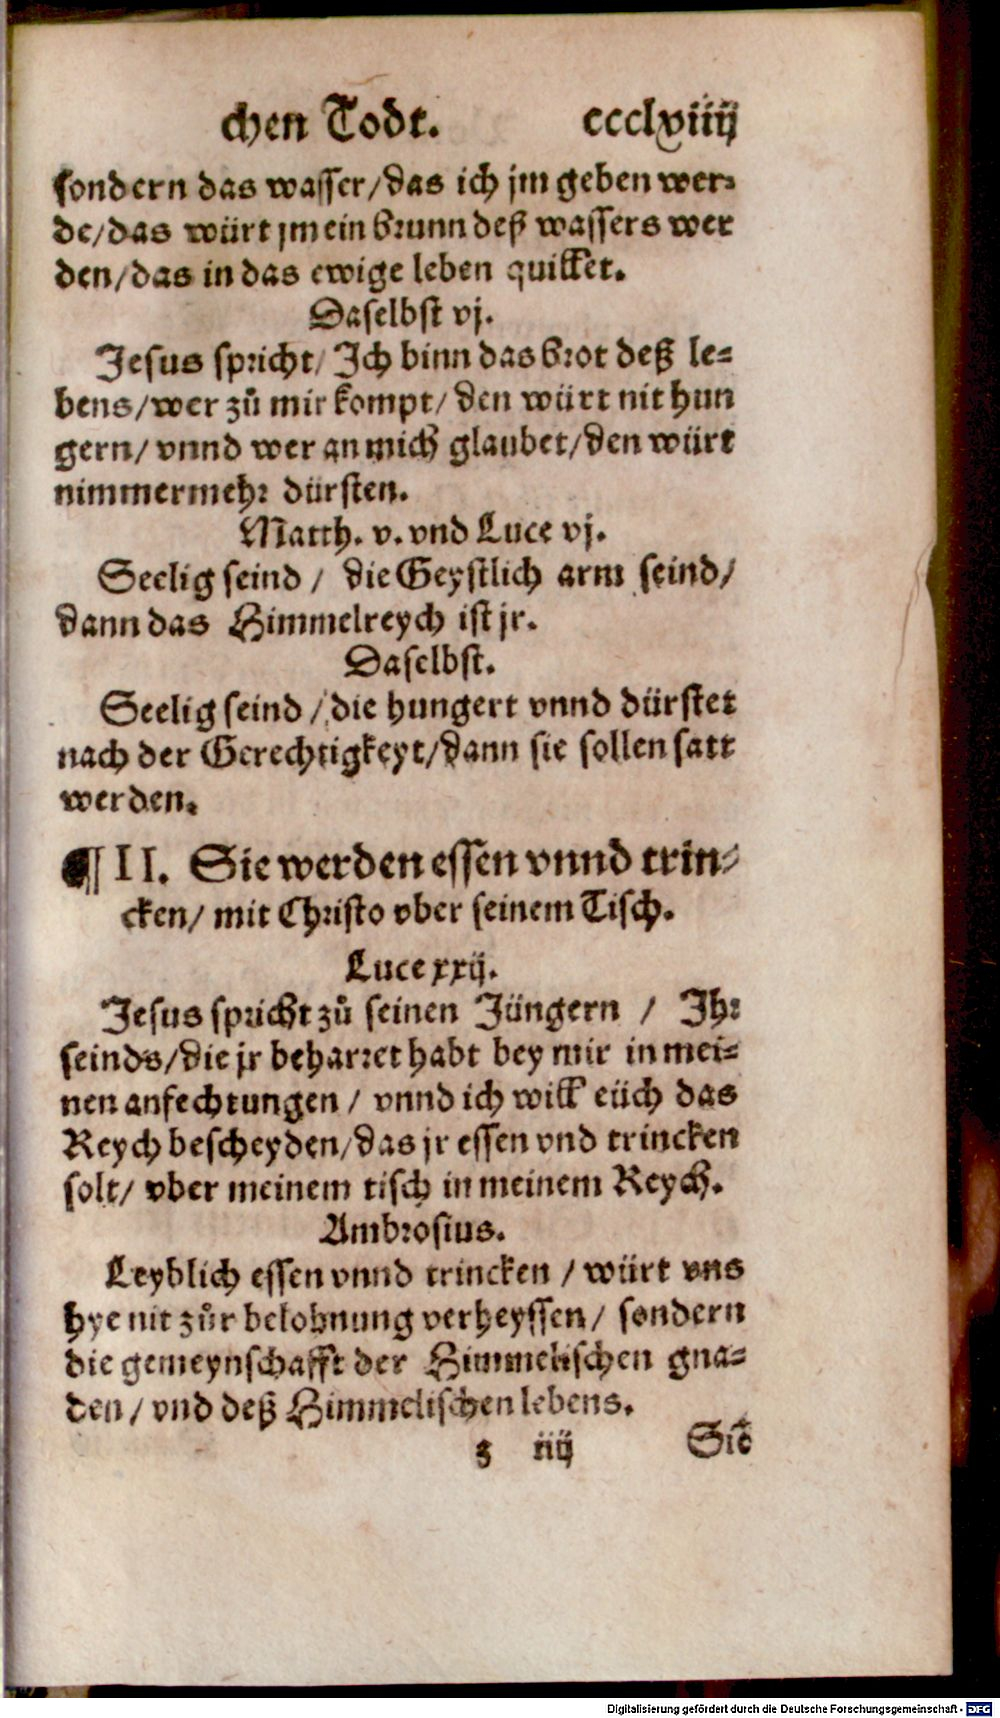 chen Todt. ccclxiiij
sondern das wasser/das ich jm geben wer⸗
de/das würt jm ein brunn deß wassers wer
den/das in das ewige leben quillet.
Daselbst vj.
Jesus spricht/ Ich binn das brot deß le⸗
bens/wer zů mir kompt/den würt nit hun
gern/ vnnd wer an mich glaubet/den würt
nimmermehr dürsten.
Matth. v. vnd Luce vj.
Seelig seind / die Geystlich arm seind/
dann das Himmelreych ist jr.
Daselbst.
Seelig seind /die hungert vnnd dürstet
nach der Gerechtigkeyt/dann sie sollen satt
werden.
¶ II. Sie werden essen vnnd trin⸗
cken/ mit Christo vber seinem Tisch.
Luce xxij.
Jesus spricht zů seinen Jüngern / Ihr
seinds/die jr beharret habt bey mir in mei⸗
nen anfechtungen / vnnd ich will eüch das
Reych bescheyden/das jr essen vnd trincken
solt/ vber meinem tisch in meinem Reych.
Ambrosius.
Leyblich essen vnnd trincken / würt vns
hye nit zůr belohnung verheyssen/ sondern
die gemeynschafft der Himmelischen gna⸗
den/ vnd deß Himmelischen lebens.
z iiij Sie
Digitalisierung gefördert durch die Deutsche Forschungsgemeinschaft - DFG